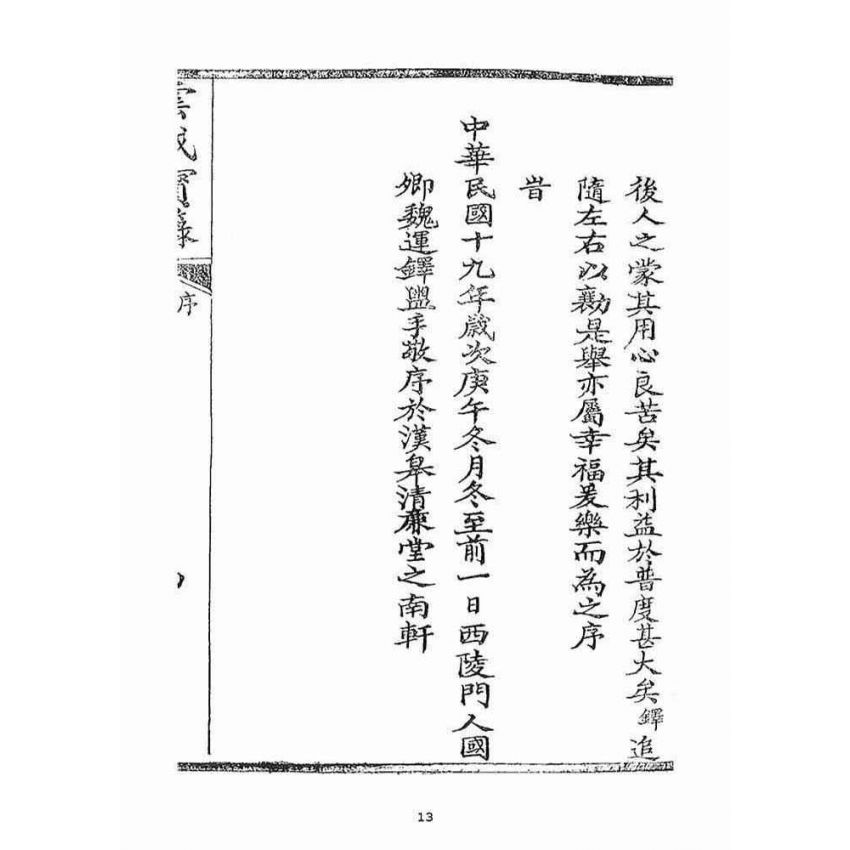 後人之蒙其用心良苦矣其利益於普度甚大矣鐸追
隨左右以勷是舉亦屬幸福爰樂而為之序
旹
中華民國十九年歲次庚午冬月冬至前一日西陵門人國
卿魏運鐸盥手敬序於漢皋清廉堂之南軒
序
13